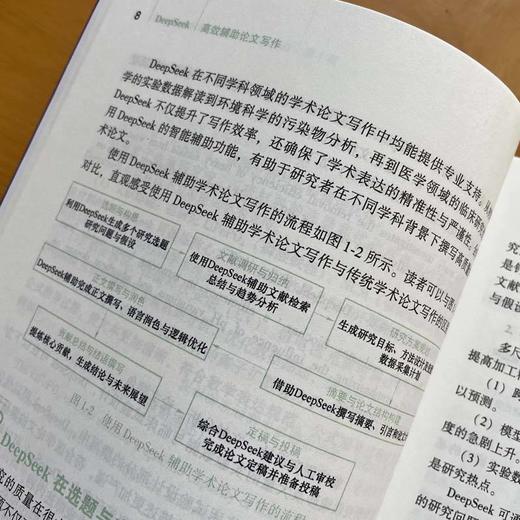 8 DeepSeek 高效辅助论文写作
DeepSeek 在不同学科领域的学术论文写作中均能提供专业支持。
学的实验数据解读到环境科学的污染物分析，再到医学领域的临床
DeepSeek 不仅提升了写作效率，还确保了学术表达的精准性与严谨性。
用 DeepSeek 的智能辅助功能，有助于研究者在不同学科背景下撰写高质
术论文。
使用 DeepSeek 辅助学术论文写作的流程如图 1-2 所示。读者可以与图
对比，直观感受使用 DeepSeek 辅助学术论文写作与传统学术论文写作的区
利用DeepSeek生成多个研究选题
研究问题与假设
文献调研与归纳
使用DeepSeek辅助文献检索
总结与趋势分析
研究方案
生成研究目标、方法设计及
数据采集计划
正文撰写与润色
DeepSeek辅助完成正文撰写、语言润色与逻辑优化
摘要与论文结构构建
借助DeepSeek撰写摘要、引言和
总结与结语撰写
提炼核心贡献，生成结论与未来展望
定稿与投稿
综合DeepSeek建议与人工审校
完成论文定稿并准备投稿
图 1-2 使用 DeepSeek 辅助学术论文写作的流程
DeepSeek 在选题与
究的质量在很
题不仅
究
是
文献
与假设
2.
多尺
提高加工精
（1）
以预测。
（2）模型
度的急剧上升。
（3）实验数
是研究热点。
DeepSeek 可通
的研究问题